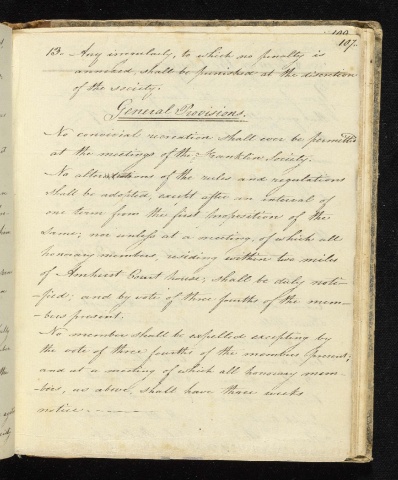 107.
13. Any immorality, to which no penalty is
annexed, shall be punished at the discretion
of the society.
General Provisions.
No convivial recreation shall ever be permitted
at the meetings of the Franklin Society.
No alterations of the rules and regulations
shall be adopted, except after an interval of
one term from the first proposition of the
same; nor unless at a meeting, of which all
honorary members, residing within two miles
of Amherst Court house, shall be duly noti-
-fied; and by vote of three fourths of the mem-
-bers present.
No member shall be expelled excepting by
the vote of three fourths of the members present;
and at a meeting of which all honorary mem-
-bers, as above, shall have three weeks
notice